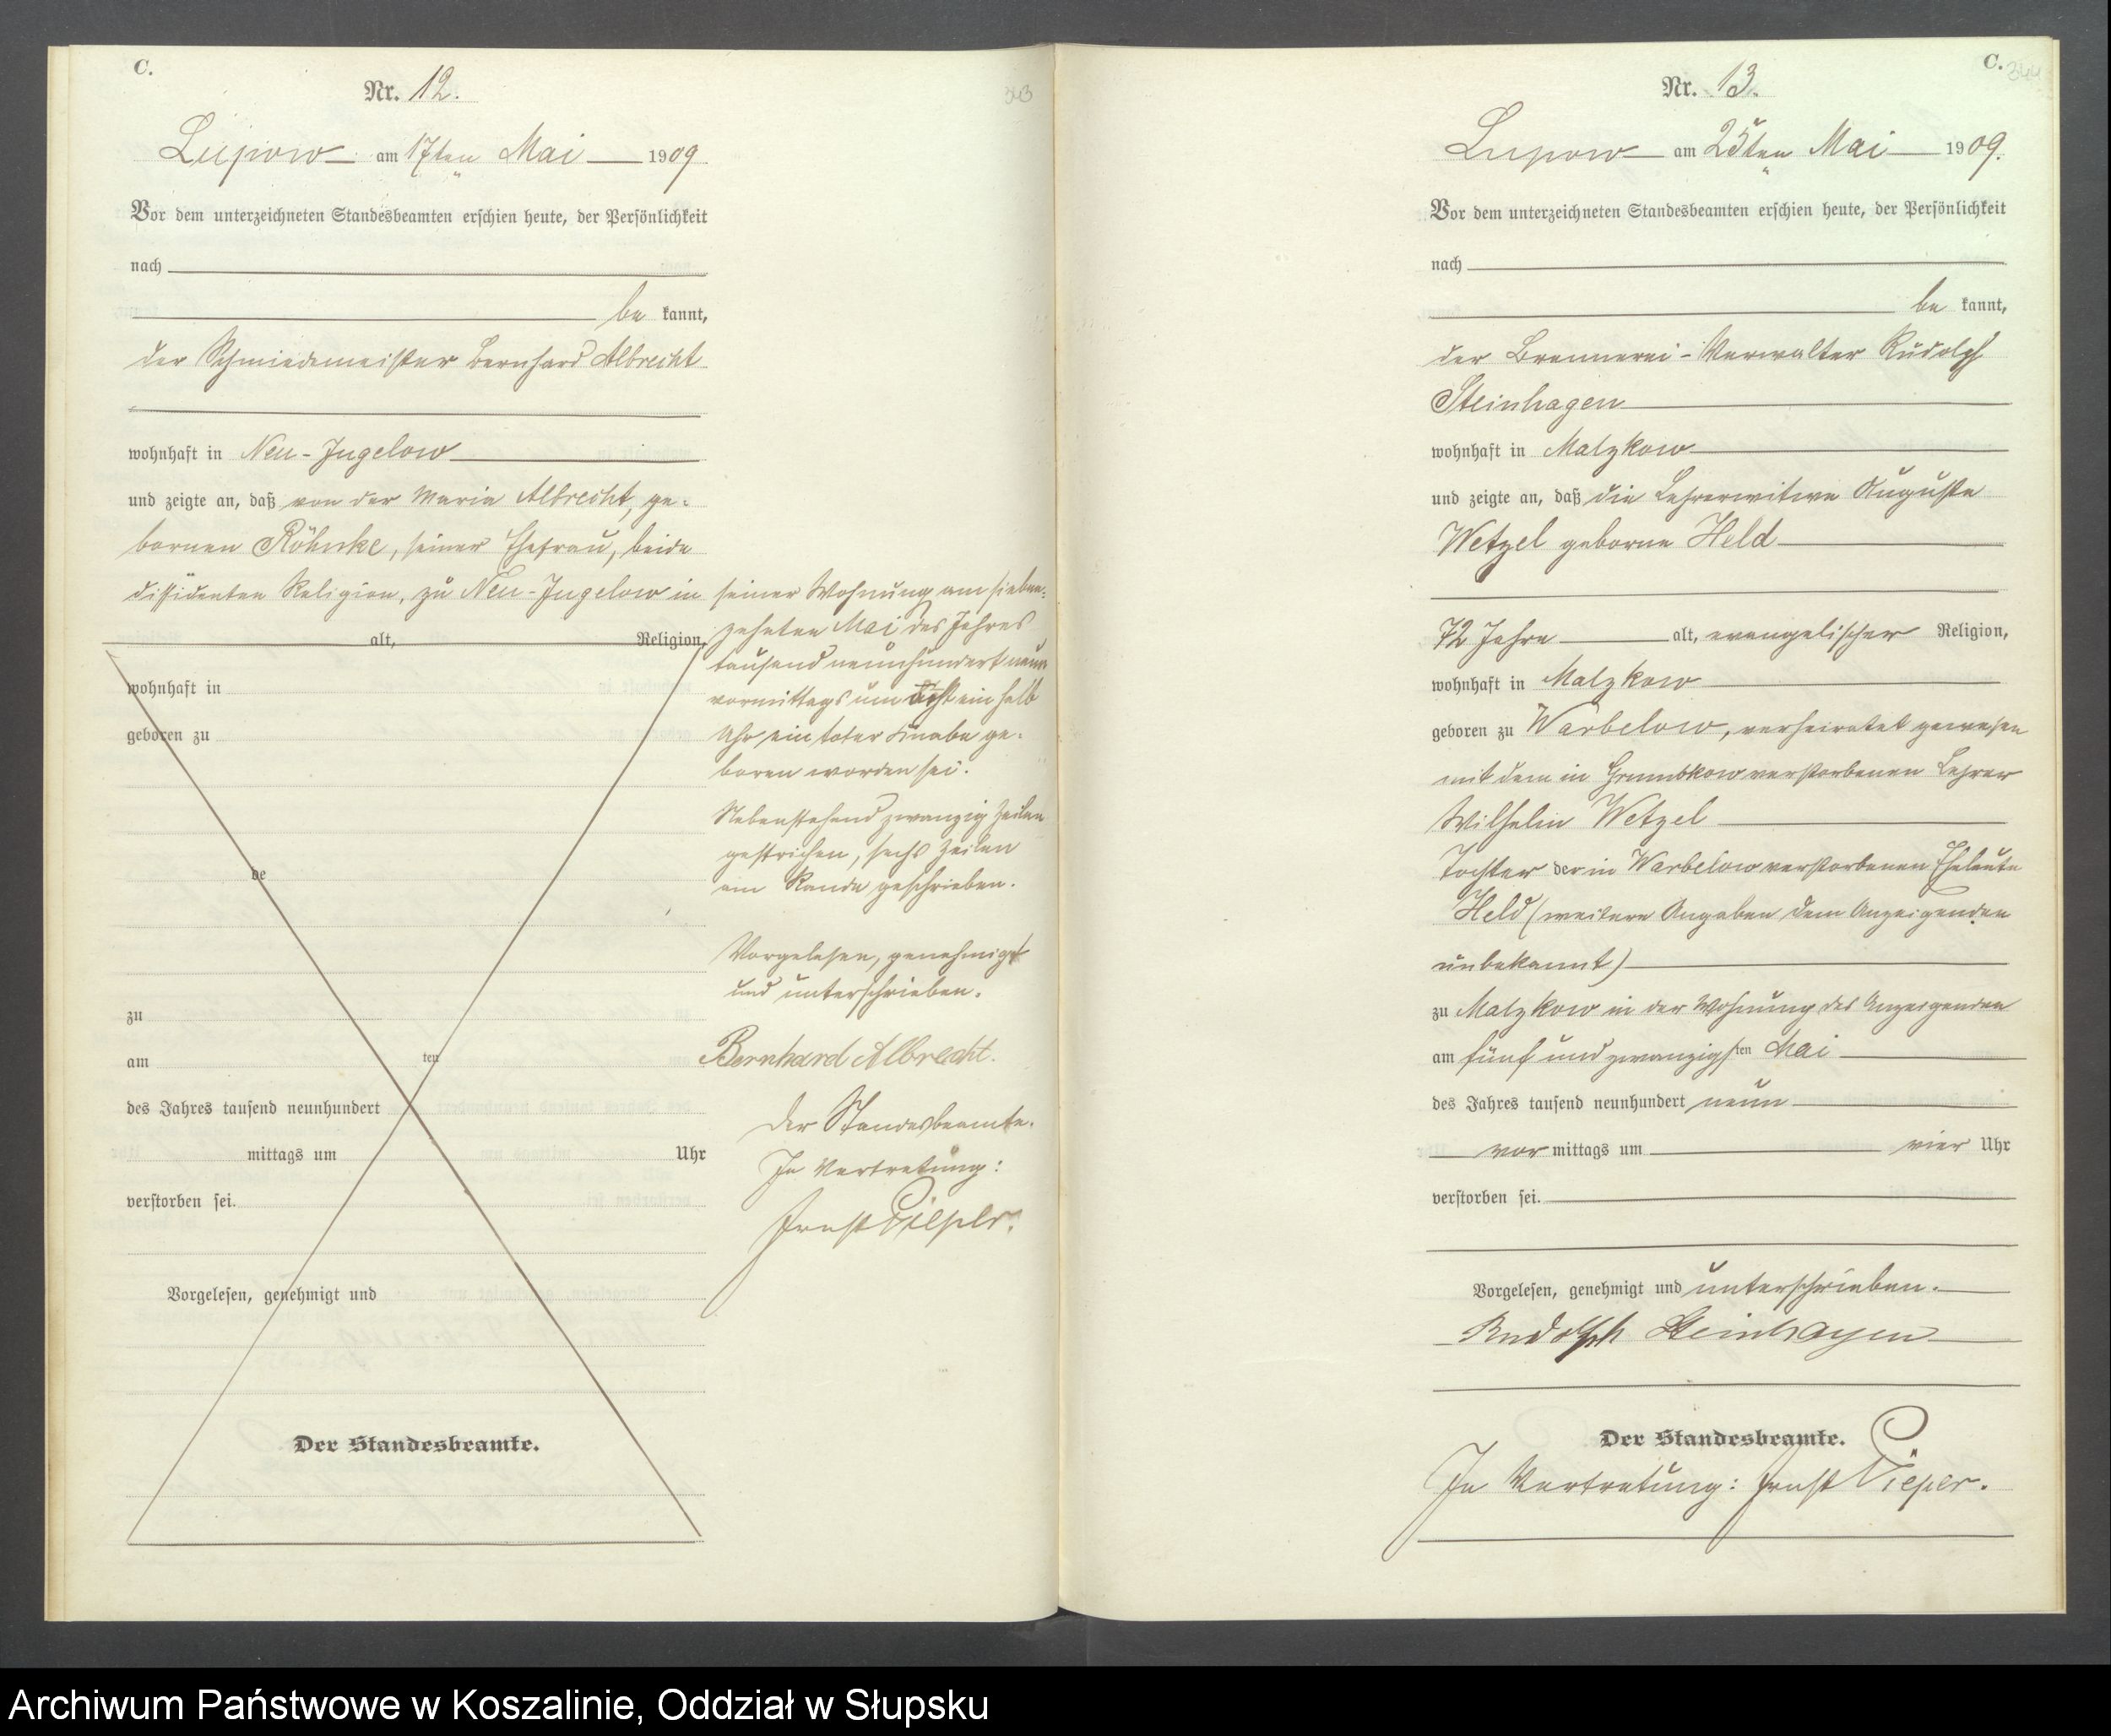 C.
Nr. 12.
Lupow am 17ten Mai 1909
Vor dem unterzeichneten Standesbeamten erschien heute, der Persönlichkeit
nach
be kannt,
der Schmiedemeister Bernhard Albrecht
wohnhaft in Neu-Jugelow
und zeigte an, daß von der Maria Albrecht, ge-
bornen Röhnke, seiner Ehefrau, beide
dissidenten Religion, zu Neu-Jugelow in
alt, Religion,
wohnhaft in
geboren zu
de
zu
am ten
des Jahres tausend neunhundert
mittags um Uhr
verstorben sei.
Vorgelesen, genehmigt und
Der Standesbeamte.
343
seiner Wohnung am sieben-
zehnten Mai des Jahres
tausend neunhundert neun
vormittags um ein halb
Uhr ein toter Knabe ge-
boren worden sei.
Nebenstehend zwanzig Zeilen
gestrichen, sechs Zeilen
am Rande geschrieben.
Vorgelesen, genehmigt
und unterschrieben.
Bernhard Albrecht.
Der Standesbeamte.
In Vertretung:
Ernst Pieper.
C. 344
Nr. 13.
Lupow am 25ten Mai 1909.
Vor dem unterzeichneten Standesbeamten erschien heute, der Persönlichkeit
nach
be kannt,
der Brennerei-Verwalter Rudolph
Steinhagen
wohnhaft in Malzkow
und zeigte an, daß die Lehrerwitwe Auguste
Wetzel geborne Held
72 Jahre alt, evangelischer Religion,
wohnhaft in Malzkow
geboren zu Warbelow, verheiratet gewesen
mit dem in Grumbkow verstorbenen Lehrer
Wilhelm Wetzel
Tochter der in Warbelow verstorbenen Eheleute
Held (weitere Angaben dem Anzeigenden
unbekannt)
zu Malzkow in der Wohnung des Anzeigenden
am fünf und zwanzigsten Mai
des Jahres tausend neunhundert neun
vor mittags um vier Uhr
verstorben sei.
Vorgelesen, genehmigt und unterschrieben.
Rudolph Steinhagen
Der Standesbeamte.
In Vertretung: Ernst Pieper.
Archiwum Państwowe w Koszalinie, Oddział w Słupsku